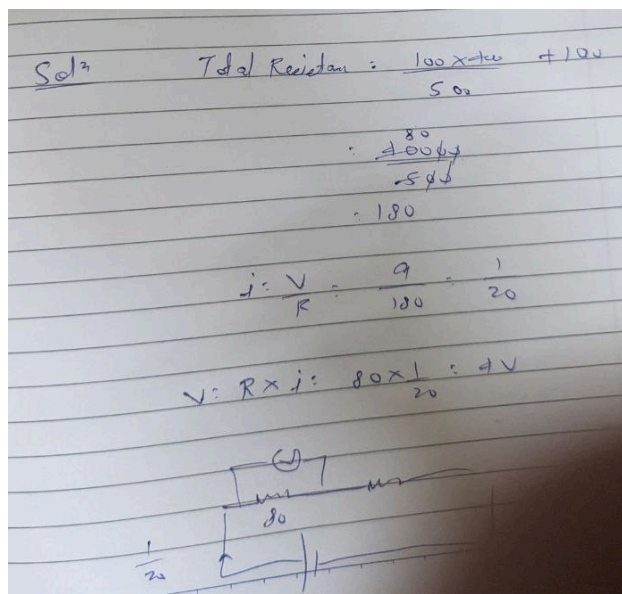 Solⁿ Total Resistan : 100 × 400 / 500 + 100
: 80
40000 / 500
: 180
i : V / R : 9 / 180 : 1 / 20
V : R × i : 80 × 1 / 20 : 4V
80
1 / 20